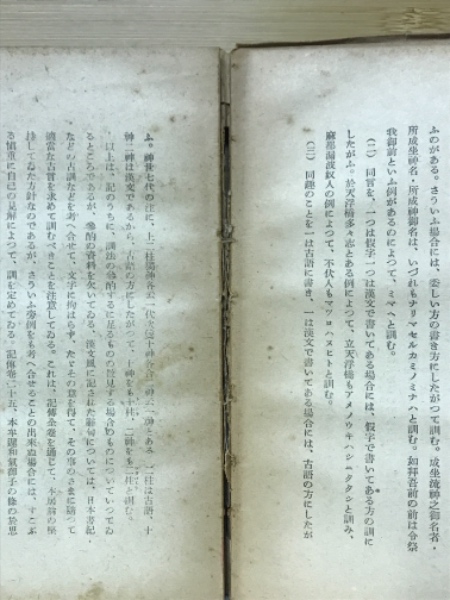 ふのがある。さういふ場合には、委しい方の書き方にしたがつて訓む。成坐流神之御名者・
所成坐神名・所成神御名は、いづれもナリマセルカミノミナハと訓む。如拜吾前の前は令祭
我御前といふ例があるのによつて、ミマヘと訓む。
(二) 同言を、一つは假字一つは漢文で書いてある場合には、假字で書いてある方の訓に
したがふ。於天浮橋多々志とある例によつて、立天浮橋もアメノウキハシニタタシと訓み、
麻都漏波奴人の例によつて、不伏人もマツロハヌヒトと訓む。
(三) 同趣のことを一は古語に書き、一は漢文で書いてある場合には、古語の方にしたが
ふ。神世七代の註に、上二柱獨神各云一代次雙十神各合二神云一代とある。二柱は古語、十
神二神は漢文であるから、古語の方にしたがつて、十神をも十柱、二神をも二柱と訓む。
以上は、記のうちに、訓法の參酌するに足るものの發見する場合のものについていつてゐ
るところであるが、參酌の資料を欠いてゐる、漢文風に記された辭句については、日本書紀・
などの古訓などを考へ合せて、文字に拘はらず、たゞその意を得て、その事のさまに隨つて
適當な古言を求めて訓むべきことを注意してゐる。これは、記傳全卷を通じて、本居翁の堅
持してゐた方針なのであるが、さういふ旁例をも考へ合せることの出來ぬ場合には、すこぶ
る愼重に自己の見解によつて、訓を定めてゐる。記傳卷二十五、本牟智和氣御子の條の於思